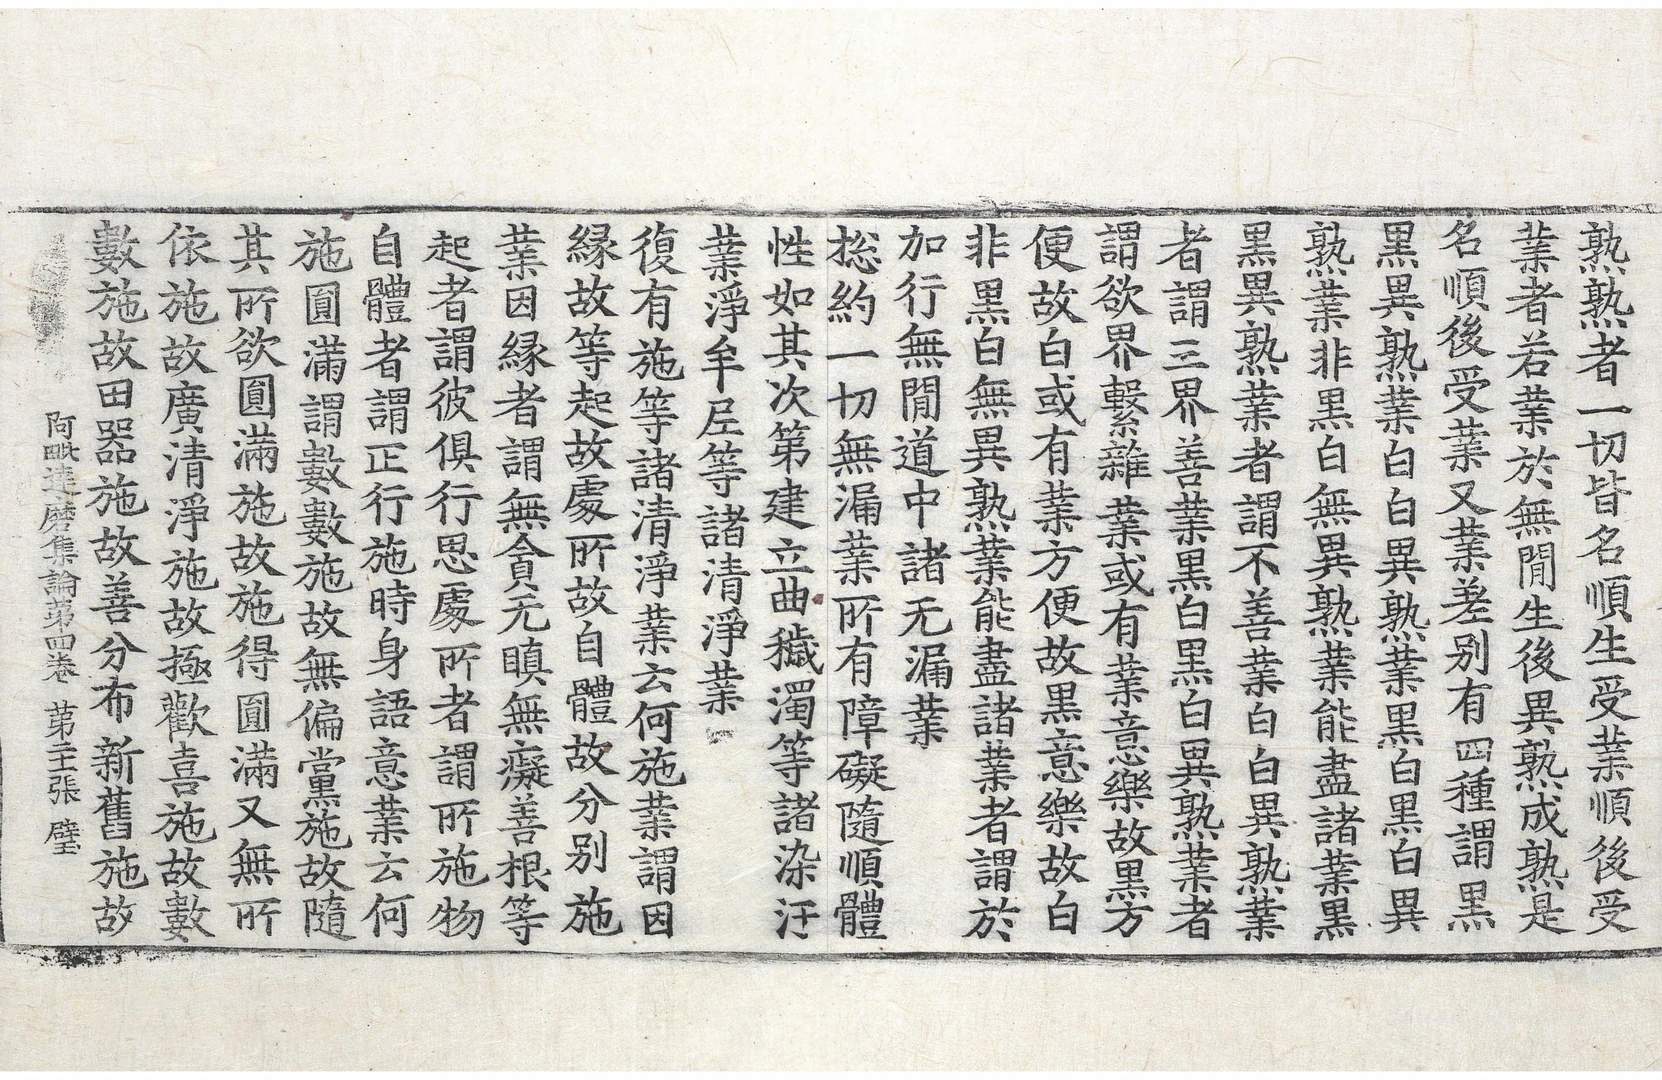 熟熟者一切皆名順生受業順後受
業者若業於無閒生後異熟成熟是
名順後受業又業差別有四種謂黑
黑異熟業白白異熟業黑白黑白異
熟業非黑白無異熟業能盡諸業黑
黑異熟業者謂不善業白白異熟業
者謂三界善業黑白黑白異熟業者
謂欲界繫雜業或有業意樂故黑方
便故白或有業方便故黑意樂故白
非黑白無異熟業能盡諸業者謂於
加行無閒道中諸无漏業
捴約一切無漏業所有障礙隨順體
性如其次第建立曲穢濁等諸染汙
業淨牟尼等諸清淨業
復有施等諸清淨業云何施業謂因
縁故等起故處所故自體故分別施
業因縁者謂無貪无瞋無癡善根等
起者謂彼俱行思處所者謂所施物
自體者謂正行施時身語意業云何
施圓滿謂數數施故無偏黨施故隨
其所欲圓滿施故施得圓滿又無所
依施故廣清淨施故極歡喜施故數
數施故田器施故善分布新舊施故
阿毗達磨集論第四卷 第三張 璧